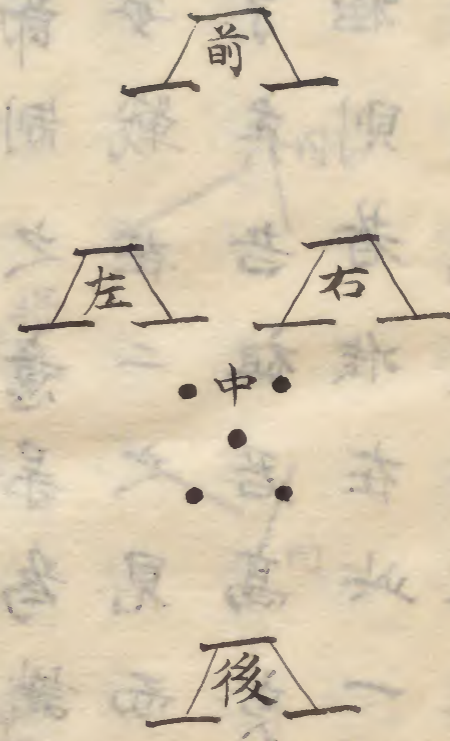 前
左 右
中
後